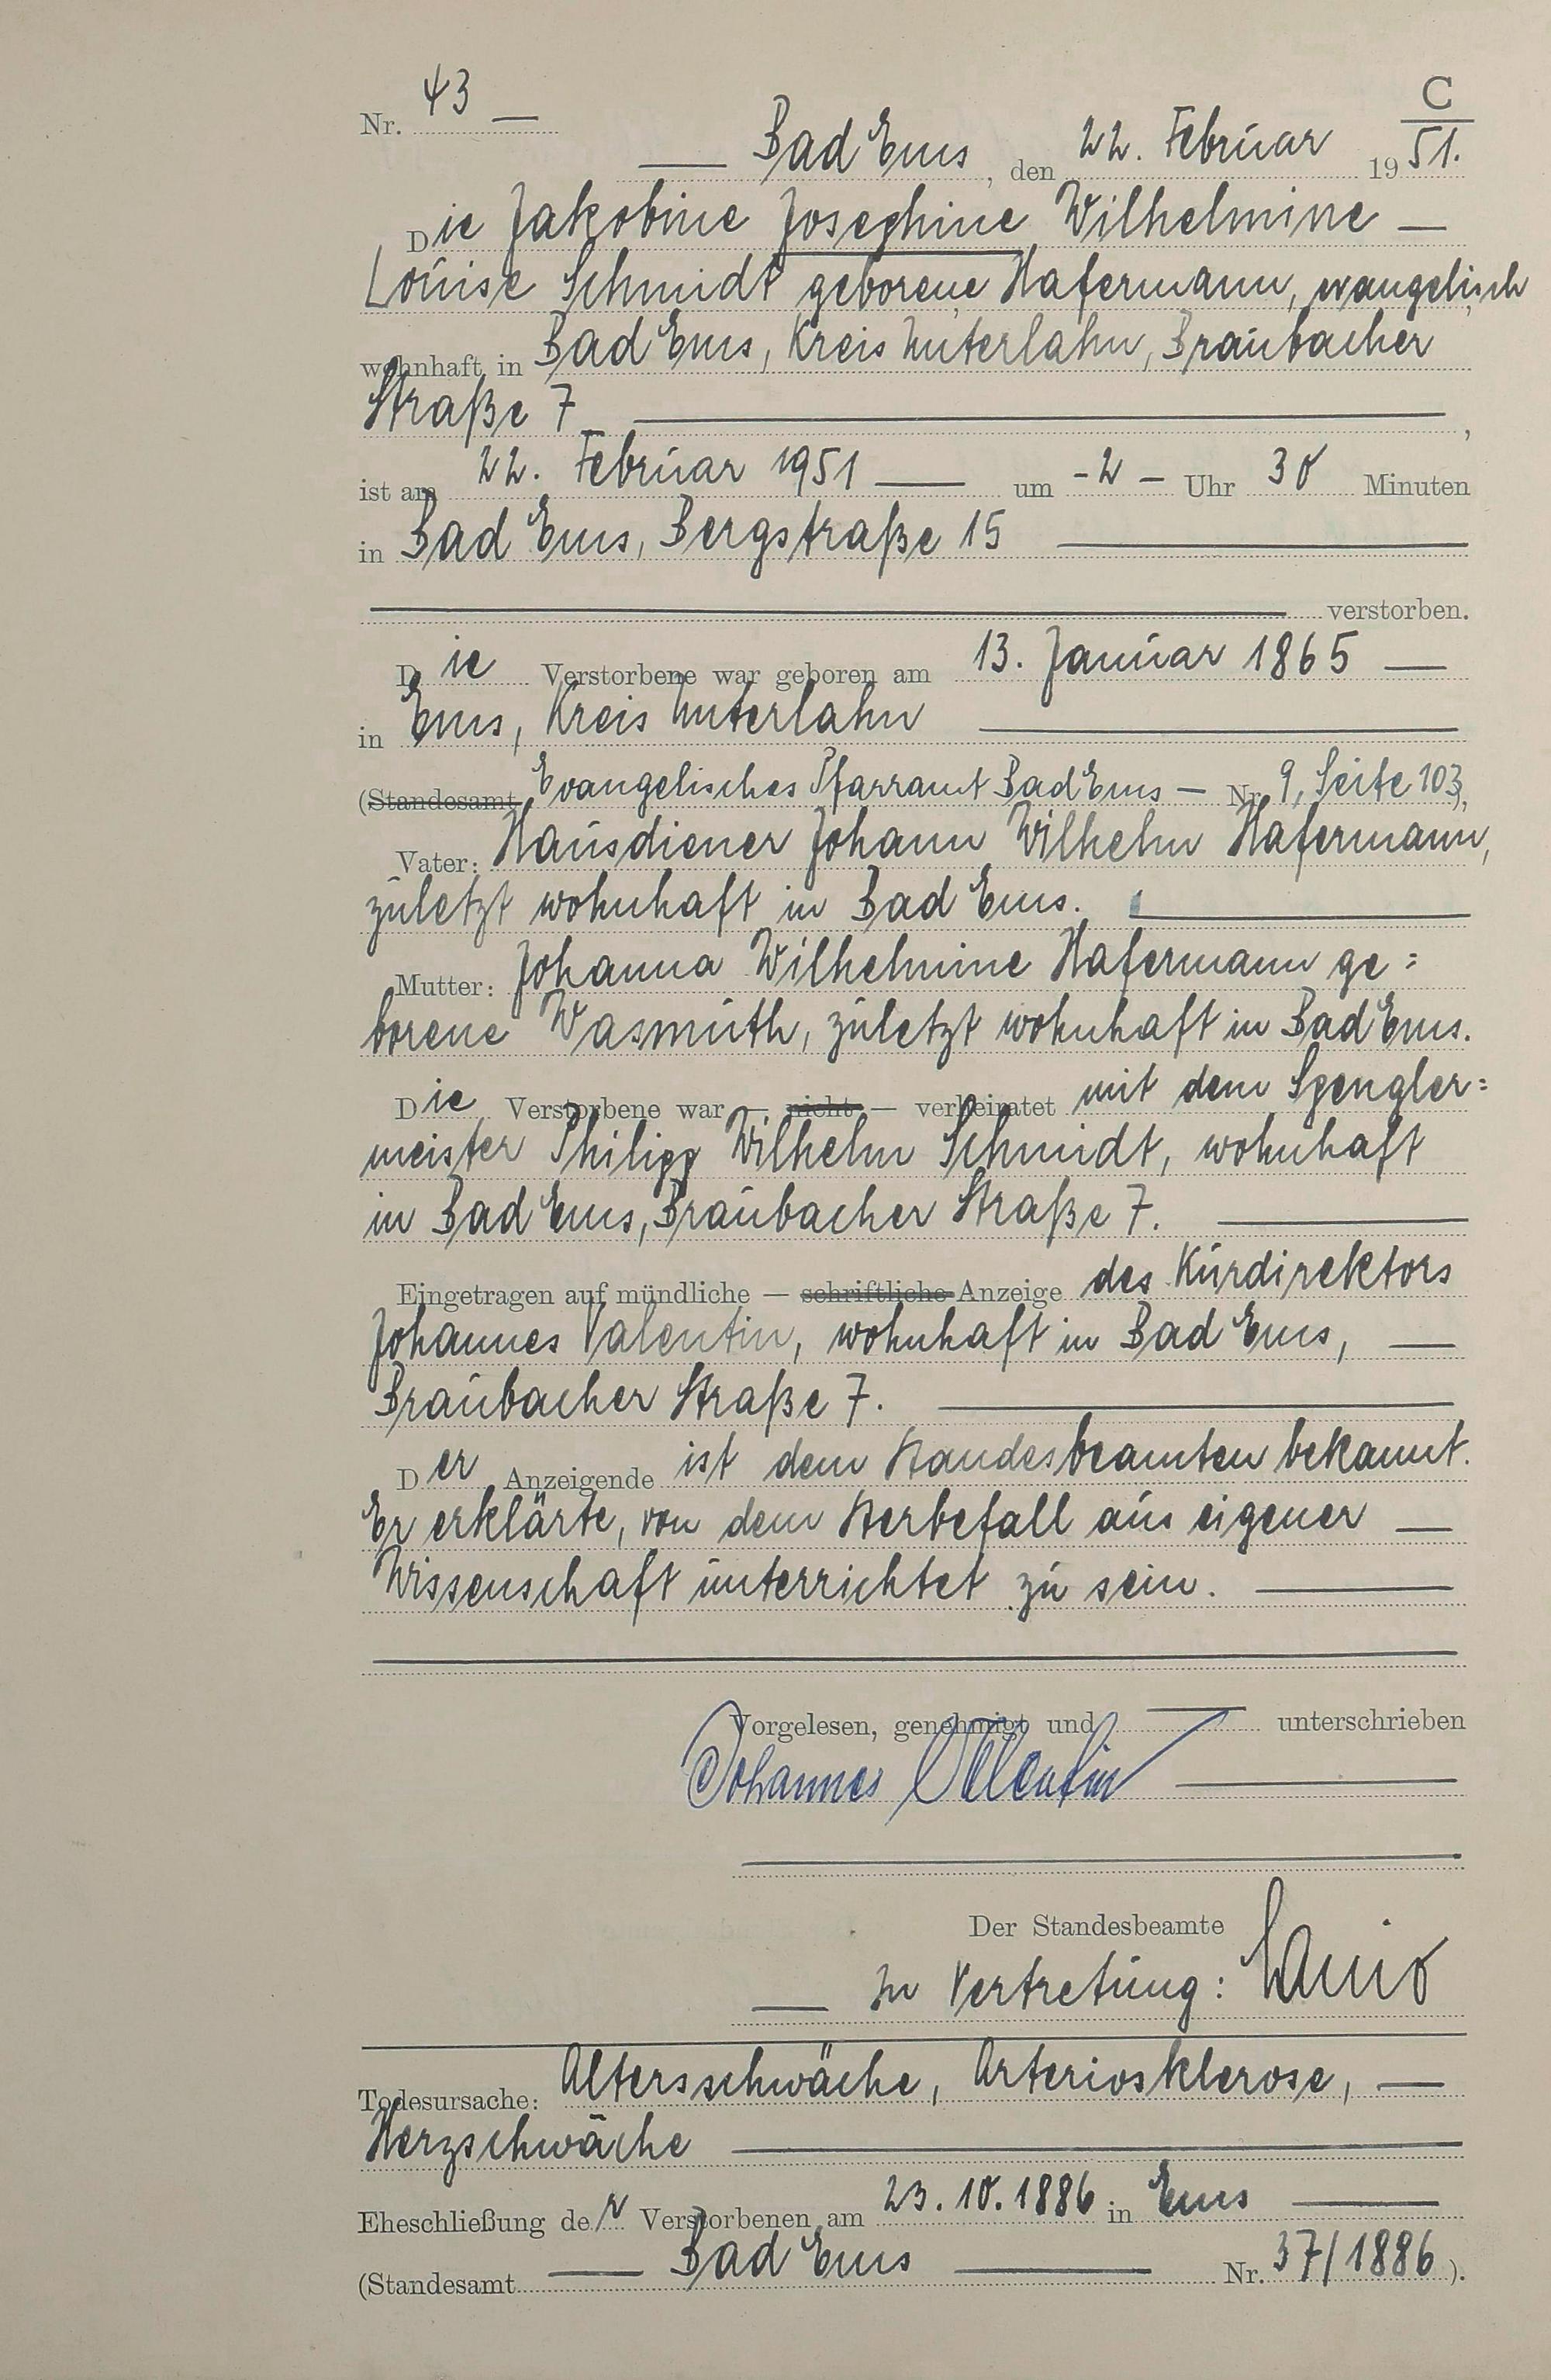 C
Nr. 43 —
— Bad Ems, den 22. Februar 1951.
Die Jakobine Josephine Wilhelmine —
Louise Schmidt geborene Hafermann, evangelisch
wohnhaft in Bad Ems, Kreis Unterlahn, Braubacher
Straße 7 —,
ist am 22. Februar 1951 — um - 2 - Uhr 30 Minuten
in Bad Ems, Bergstraße 15 —
— verstorben.
Die Verstorbene war geboren am 13. Januar 1865 —
in Ems, Kreis Unterlahn —
(Standesamt Evangelisches Pfarramt Bad Ems — Nr. 9, Seite 103,
Vater: Hausdiener Johann Wilhelm Hafermann,
zuletzt wohnhaft in Bad Ems. —
Mutter: Johanna Wilhelmine Hafermann ge=
borene Wasmuth, zuletzt wohnhaft in Bad Ems.
Die Verstorbene war — nicht — verheiratet mit dem Spengler=
meister Philipp Wilhelm Schmidt, wohnhaft
in Bad Ems, Braubacher Straße 7. —
Eingetragen auf mündliche — schriftliche Anzeige des Kurdirektors
Johannes Valentin, wohnhaft in Bad Ems, —
Braubacher Straße 7. —
Der Anzeigende ist dem Standesbeamten bekannt.
Er erklärte, von dem Sterbefall aus eigener —
Wissenschaft unterrichtet zu sein. —
Vorgelesen, genehmigt und — unterschrieben
Johannes Valentin —
Der Standesbeamte
— In Vertretung:
Todesursache: Altersschwäche, Arteriosklerose, —
Herzschwäche —
Eheschließung der Verstorbenen am 23.10.1886 in Ems —
(Standesamt — Bad Ems — Nr. 37/1886).